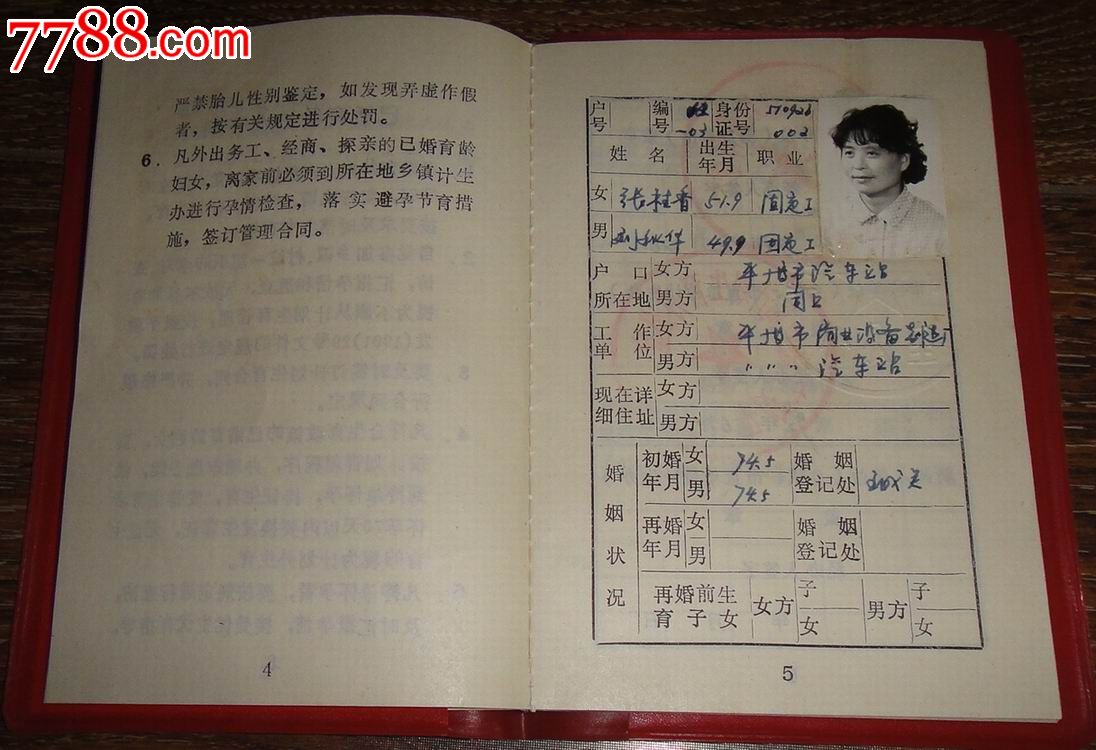 7788.com
严禁胎儿性别鉴定，如发现弄虚作假
者，按有关规定进行处罚。
6．凡外出务工、经商、探亲的已婚育龄
妇女，离家前必须到所在地乡镇计生
办进行孕情检查，落实避孕节育措
施，签订管理合同。
4
户号 编号 -03 身份证号 510926 002
姓名 出生年月 职业
女 张桂香 51.9 固定工
男 刘秋华 49.9 固定工
户口所在地 女方 汽车站
男方 同上
工作单位 女方 市商业设备制造厂
男方 〃 〃 〃 汽车站
现在详细住址 女方
男方
婚姻状况
初婚年月 女 74.5 婚姻登记处
男 74.5
再婚年月 女 婚姻登记处
男
再婚前生育子女 女方 子 女 男方 子 女
5